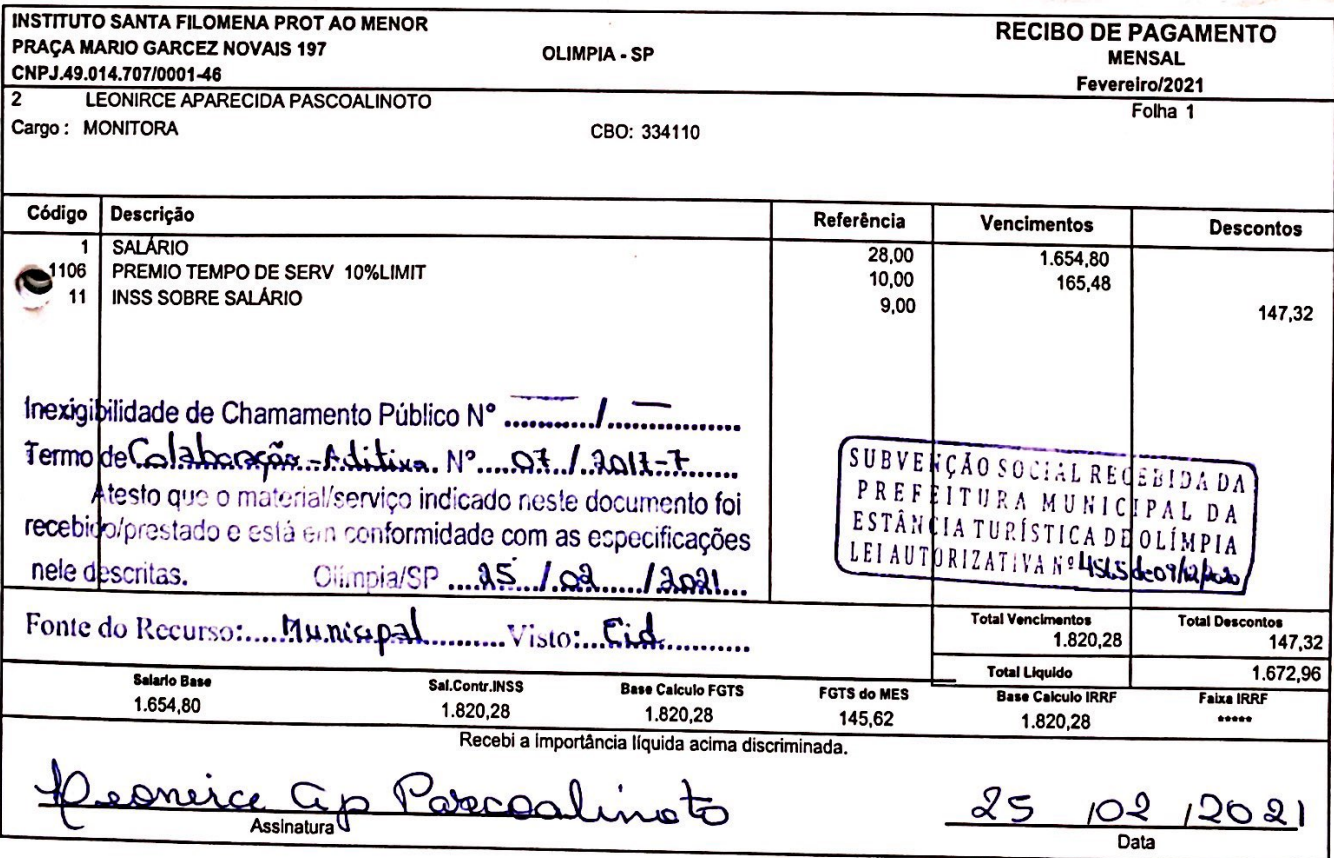 INSTITUTO SANTA FILOMENA PROT AO MENOR
PRAÇA MARIO GARCEZ NOVAIS 197 OLIMPIA - SP
CNPJ.49.014.707/0001-46
RECIBO DE PAGAMENTO
MENSAL
Fevereiro/2021
2 LEONIRCE APARECIDA PASCOALINOTO Folha 1
Cargo : MONITORA CBO: 334110
Código Descrição Referência Vencimentos Descontos
1 SALÁRIO 28,00 1.654,80
1106 PREMIO TEMPO DE SERV 10%LIMIT 10,00 165,48
11 INSS SOBRE SALÁRIO 9,00 147,32
Inexigibilidade de Chamamento Público Nº ............/................
Termo de Colaboração-Aditivo Nº 07/2017-7
Atesto que o material/serviço indicado neste documento foi
recebido/prestado e está em conformidade com as especificações
nele descritas. Olimpia/SP 25/02/2021
SUBVENÇÃO SOCIAL RECEBIDA DA
PREFEITURA MUNICIPAL DA
ESTÂNCIA TURÍSTICA DE OLÍMPIA
LEI AUTORIZATIVA Nº 4565 de 09/12/2020
Fonte do Recurso: Municipal Visto: Cid
Total Vencimentos Total Descontos
1.820,28 147,32
Total Liquido 1.672,96
Salario Base Sal.Contr.INSS Base Calculo FGTS FGTS do MES Base Calculo IRRF Faixa IRRF
1.654,80 1.820,28 1.820,28 145,62 1.820,28 *****
Recebi a importância líquida acima discriminada.
Leonirce Ap Pascoalinoto 25/02/2021
Assinatura Data